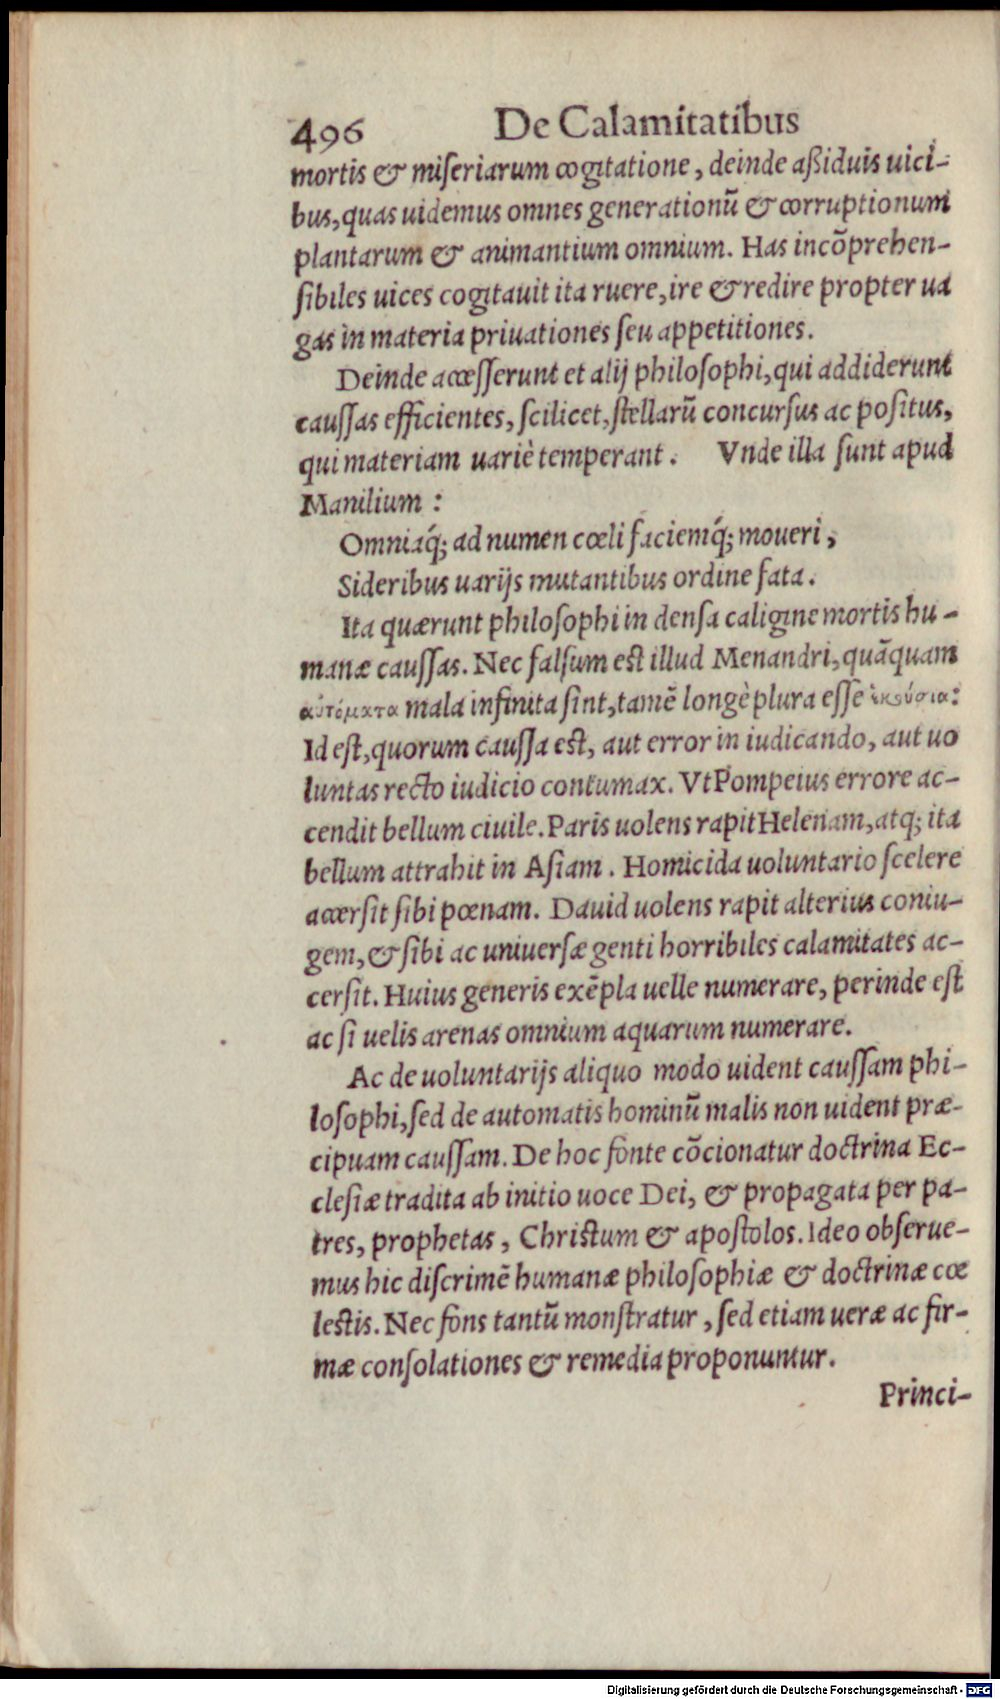 496 De Calamitatibus
mortis & miſeriarum cogitatione, deinde aßiduis uici-
bus, quas uidemus omnes generationū & corruptionum
plantarum & animantium omnium. Has incōprehen-
ſibiles uices cogitauit ita ruere, ire & redire propter ua
gas in materia priuationes ſeu appetitiones.
Deinde acceſſerunt et alij philoſophi, qui addiderunt
cauſſas efficientes, ſcilicet, ſtellarū concurſus ac poſitus,
qui materiam uariè temperant. Vnde illa ſunt apud
Manilium:
Omniaq́; ad numen cœli faciemq́; moueri,
Sideribus uarijs mutantibus ordine fata.
Ita quærunt philoſophi in denſa caligine mortis hu-
manæ cauſſas. Nec falſum est illud Menandri, quãquam
αὐτόματα mala infinita ſint, tamē longè plura eſſe ἑκούσια:
Id eſt, quorum cauſſa est, aut error in iudicando, aut uo
luntas recto iudicio contumax. Vt Pompeius errore ac-
cendit bellum ciuile. Paris uolens rapit Helenam, atq; ita
bellum attrahit in Aſiam. Homicida uoluntario ſcelere
accerſit ſibi pœnam. Dauid uolens rapit alterius coniu-
gem, & ſibi ac uniuerſæ genti horribiles calamitates ac-
cerſit. Huius generis exēpla uelle numerare, perinde eſt
ac ſi uelis arenas omnium aquarum numerare.
Ac de uoluntarijs aliquo modo uident cauſſam phi-
loſophi, ſed de automatis hominū malis non uident præ-
cipuam cauſſam. De hoc fonte cōcionatur doctrina Ec-
cleſiæ tradita ab initio uoce Dei, & propagata per pa-
tres, prophetas, Christum & apoſtolos. Ideo obſerue-
mus hic diſcrimē humanæ philoſophiæ & doctrinæ cœ
lestis. Nec fons tantū monſtratur, ſed etiam ueræ ac fir-
mæ conſolationes & remedia proponuntur.
Princi-
Digitalisierung gefördert durch die Deutsche Forschungsgemeinschaft - DFG